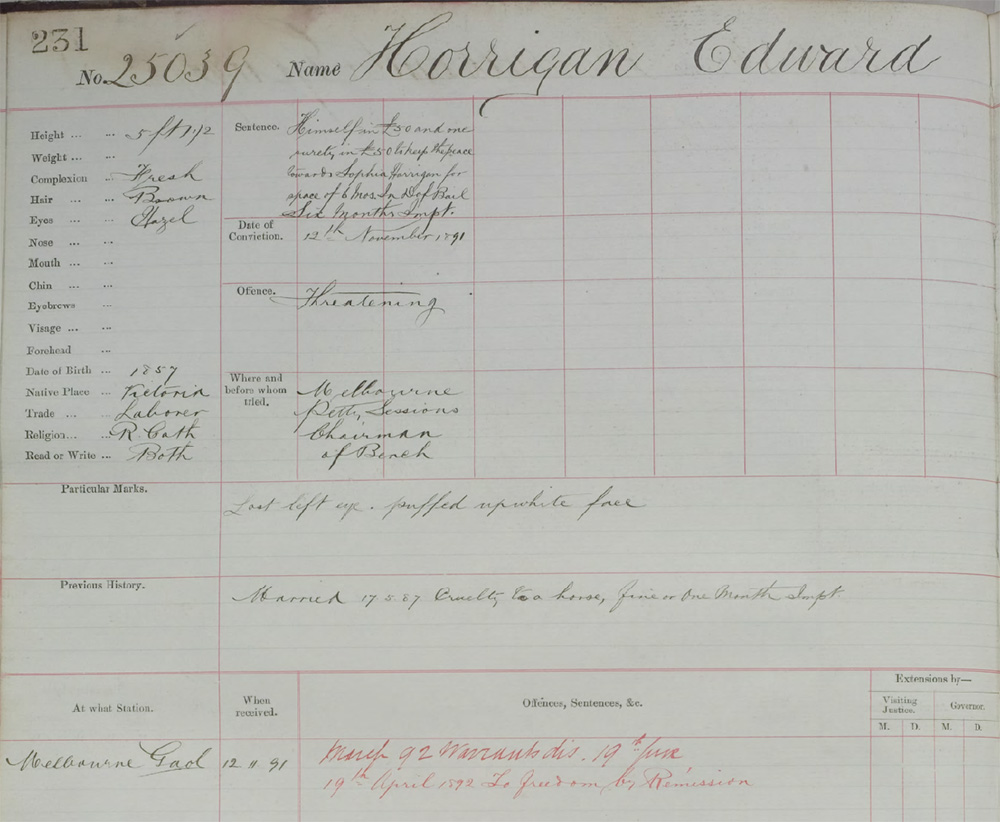 231
No. 25039 Name Horrigan Edward
Height ... ... 5 ft 1 1/2
Weight ... ...
Complexion ... Fresh
Hair ... ... Brown
Eyes ... ... Hazel
Nose ... ...
Mouth ... ...
Chin ... ...
Eyebrows ...
Visage ... ...
Forehead ...
Date of Birth ... 1857
Native Place ... Victoria
Trade ... ... Laborer
Religion... ... R. Cath
Read or Write ... Both
Sentence. Himself in £50 and one
surety in £50 to keep the peace
towards Sophia Horrigan for
space of 6 Mos. In D of Bail
Six Months Impt.
Date of
Conviction. 12th November, 1891
Offence. Threatening
Where and
before whom
tried.
Melbourne
Petty Sessions
Chairman
of Bench
Particular Marks. Lost left eye. puffed up white face
Previous History. Married 17 5 87 Cruelty to a horse, fine or One Month Impt.
At what Station. When
received. Offences, Sentences, &c. Extensions by—
Visiting
Justice. Governor.
M. D. M. D.
Melbourne Gaol 12 11 91 92 Warrants dis. 19th
19th April 1892 To freedom by Remission